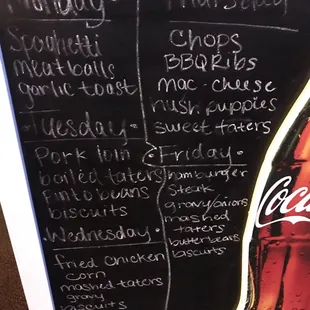 Monday
Spaghetti
meatballs
garlic toast
Tuesday
Pork loin
boiled taters
Pinto beans
biscuits
Wednesday
fried chicken
corn
mashed taters
gravy
biscuits
Thursday
Chops
BBQ Ribs
mac-cheese
hush puppies
sweet taters
Friday
hamburger
Steak
gravy/onions
mashed
taters
butterbeans
biscuits
Coca